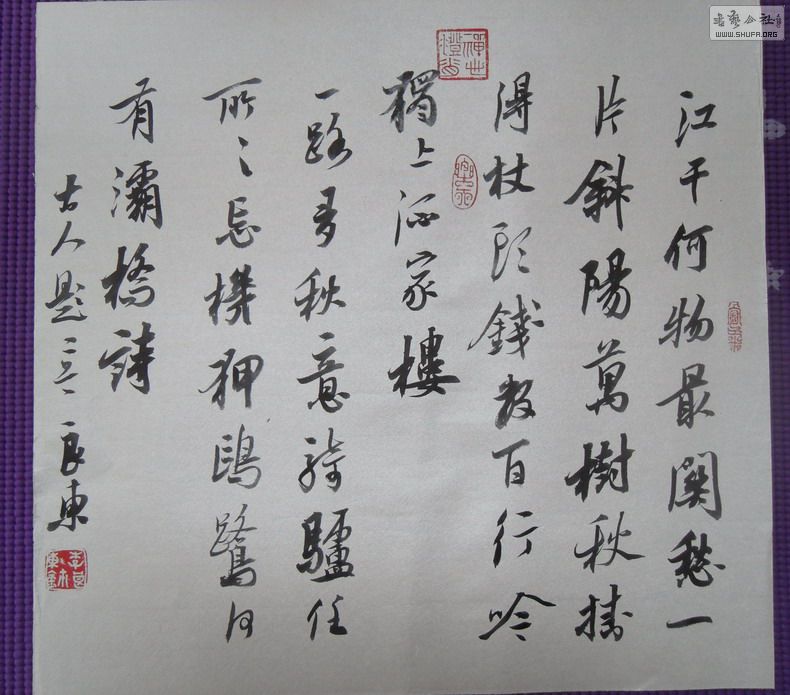 江干何物最關愁一
片斜陽萬樹秋掛
得杖頭錢數百行吟
獨上酒家樓
一路多秋意騎驢任
所之忘機狎鷗鷺
有灞橋詩
古人題 良東
書藝公社
WWW.SHUFA.ORG